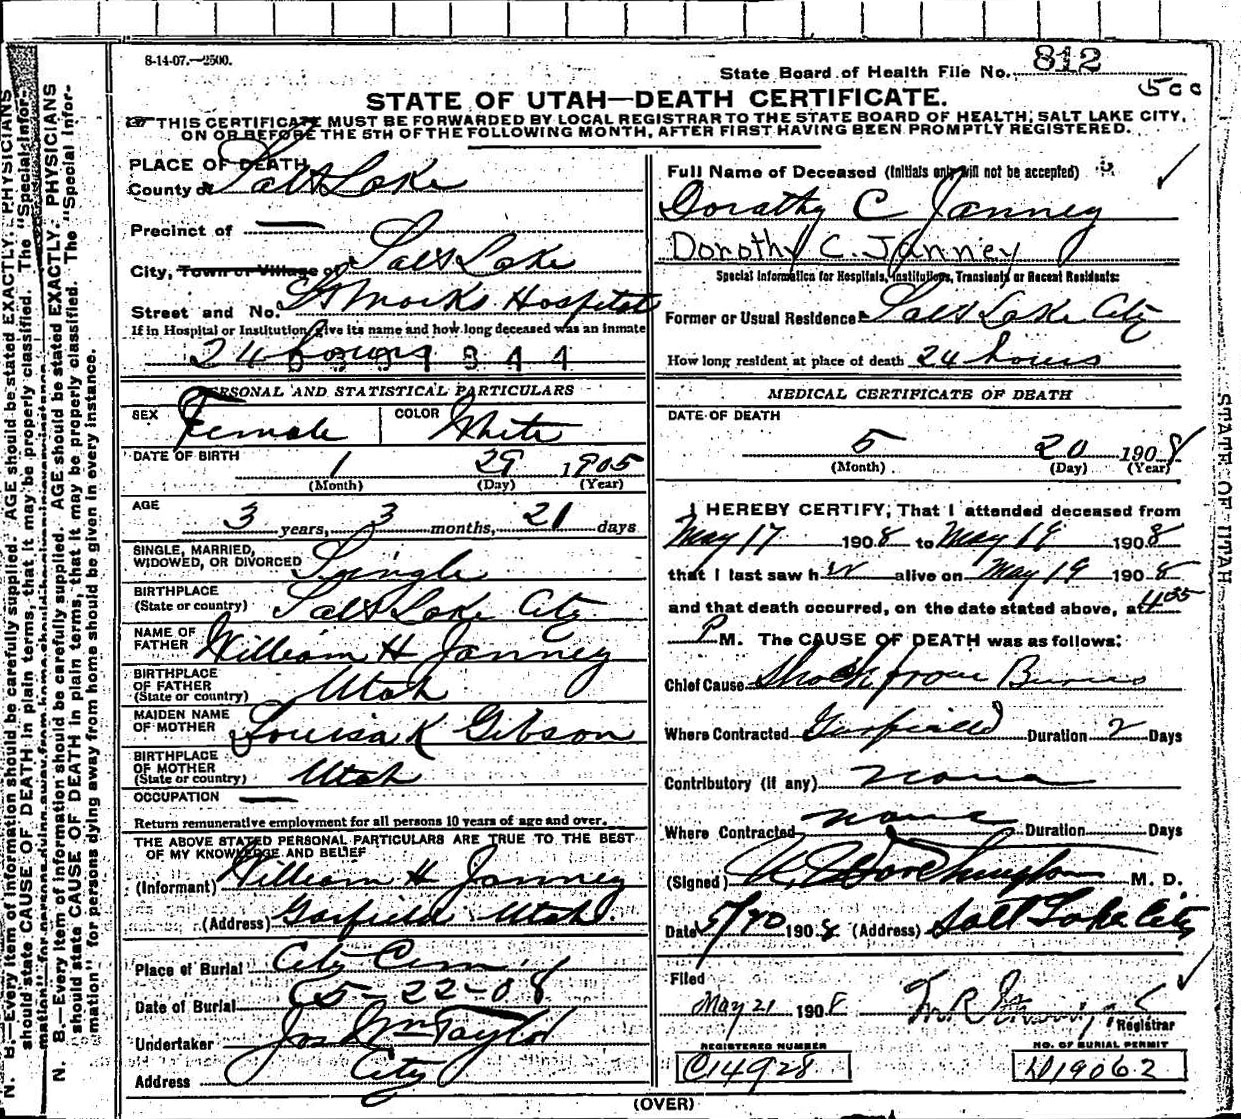 8-14-07.—2500.
State Board of Health File No. 812
500
STATE OF UTAH—DEATH CERTIFICATE.
THIS CERTIFICATE MUST BE FORWARDED BY LOCAL REGISTRAR TO THE STATE BOARD OF HEALTH, SALT LAKE CITY,
ON OR BEFORE THE 5TH OF THE FOLLOWING MONTH, AFTER FIRST HAVING BEEN PROMPTLY REGISTERED.
PLACE OF DEATH
County of Salt Lake
Precinct of —
City, Town or Village of Salt Lake
Street and No. St Marks Hospital
If in Hospital or Institution, give its name and how long deceased was an inmate
24 hours
PERSONAL AND STATISTICAL PARTICULARS
SEX Female COLOR White
DATE OF BIRTH
1 29 1905
(Month) (Day) (Year)
AGE
3 years, 3 months, 21 days
SINGLE, MARRIED,
WIDOWED, OR DIVORCED Single
BIRTHPLACE
(State or country) Salt Lake City
NAME OF
FATHER William H Janney
BIRTHPLACE
OF FATHER
(State or country) Utah
MAIDEN NAME
OF MOTHER Louisa K Gibson
BIRTHPLACE
OF MOTHER
(State or country) Utah
OCCUPATION —
Return remunerative employment for all persons 10 years of age and over.
THE ABOVE STATED PERSONAL PARTICULARS ARE TRUE TO THE BEST
OF MY KNOWLEDGE AND BELIEF
(Informant) William H Janney
(Address) Garfield Utah.
Place of Burial City Cem.
Date of Burial 5-22-08
Undertaker Jos Wm Taylor
Address City
Full Name of Deceased (Initials only will not be accepted)
Dorathy C Janney
Dorothy C. Janney
Special Information for Hospitals, Institutions, Transients or Recent Residents:
Former or Usual Residence Salt Lake City
How long resident at place of death 24 hours
MEDICAL CERTIFICATE OF DEATH
DATE OF DEATH
5 20 1908
(Month) (Day) (Year)
I HEREBY CERTIFY, That I attended deceased from
May 17 1908 to May 19 1908
that I last saw her alive on May 19 1908
and that death occurred, on the date stated above, at 4:05
P M. The CAUSE OF DEATH was as follows:
Chief Cause Shock from Burns
Where Contracted Garfield Duration 2 Days
Contributory (if any) none
Where Contracted none Duration Days
(Signed) Worthington M. D.
Date 5/20 1908 (Address) Salt Lake City
Filed
May 21 1908
Registrar
REGISTERED NUMBER
C14928
NO. OF BURIAL PERMIT
D19062
(OVER)
N. B.—Every item of information should be carefully supplied. AGE should be stated EXACTLY. PHYSICIANS
should state CAUSE OF DEATH in plain terms, that it may be properly classified. The "Special Infor-
mation" for persons dying away from home should be given in every instance.
N. B.—Every item of information should be carefully supplied. AGE should be stated EXACTLY. PHYSICIANS
should state CAUSE OF DEATH in plain terms, that it may be properly classified. The "Special Infor-
mation" for persons dying away from home should be given in every instance.
STATE OF UTAH